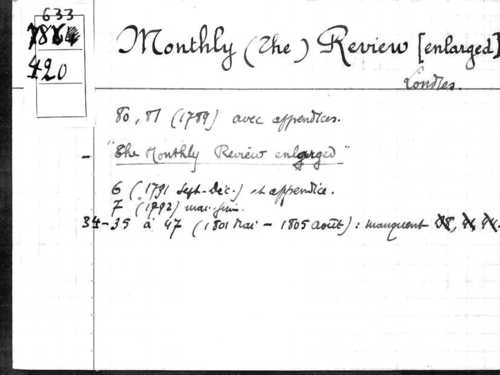 633
420
Monthly (The) Review [enlarged]
Londres.
80, 81 (1789) avec appendices.
- "The Monthly Review enlarged"
6 (1791 Sept-Déc.) et appendice.
7 (1792) mai-juin.
34-35 à 47 (1801 Mai - 1805 Août) : manquent